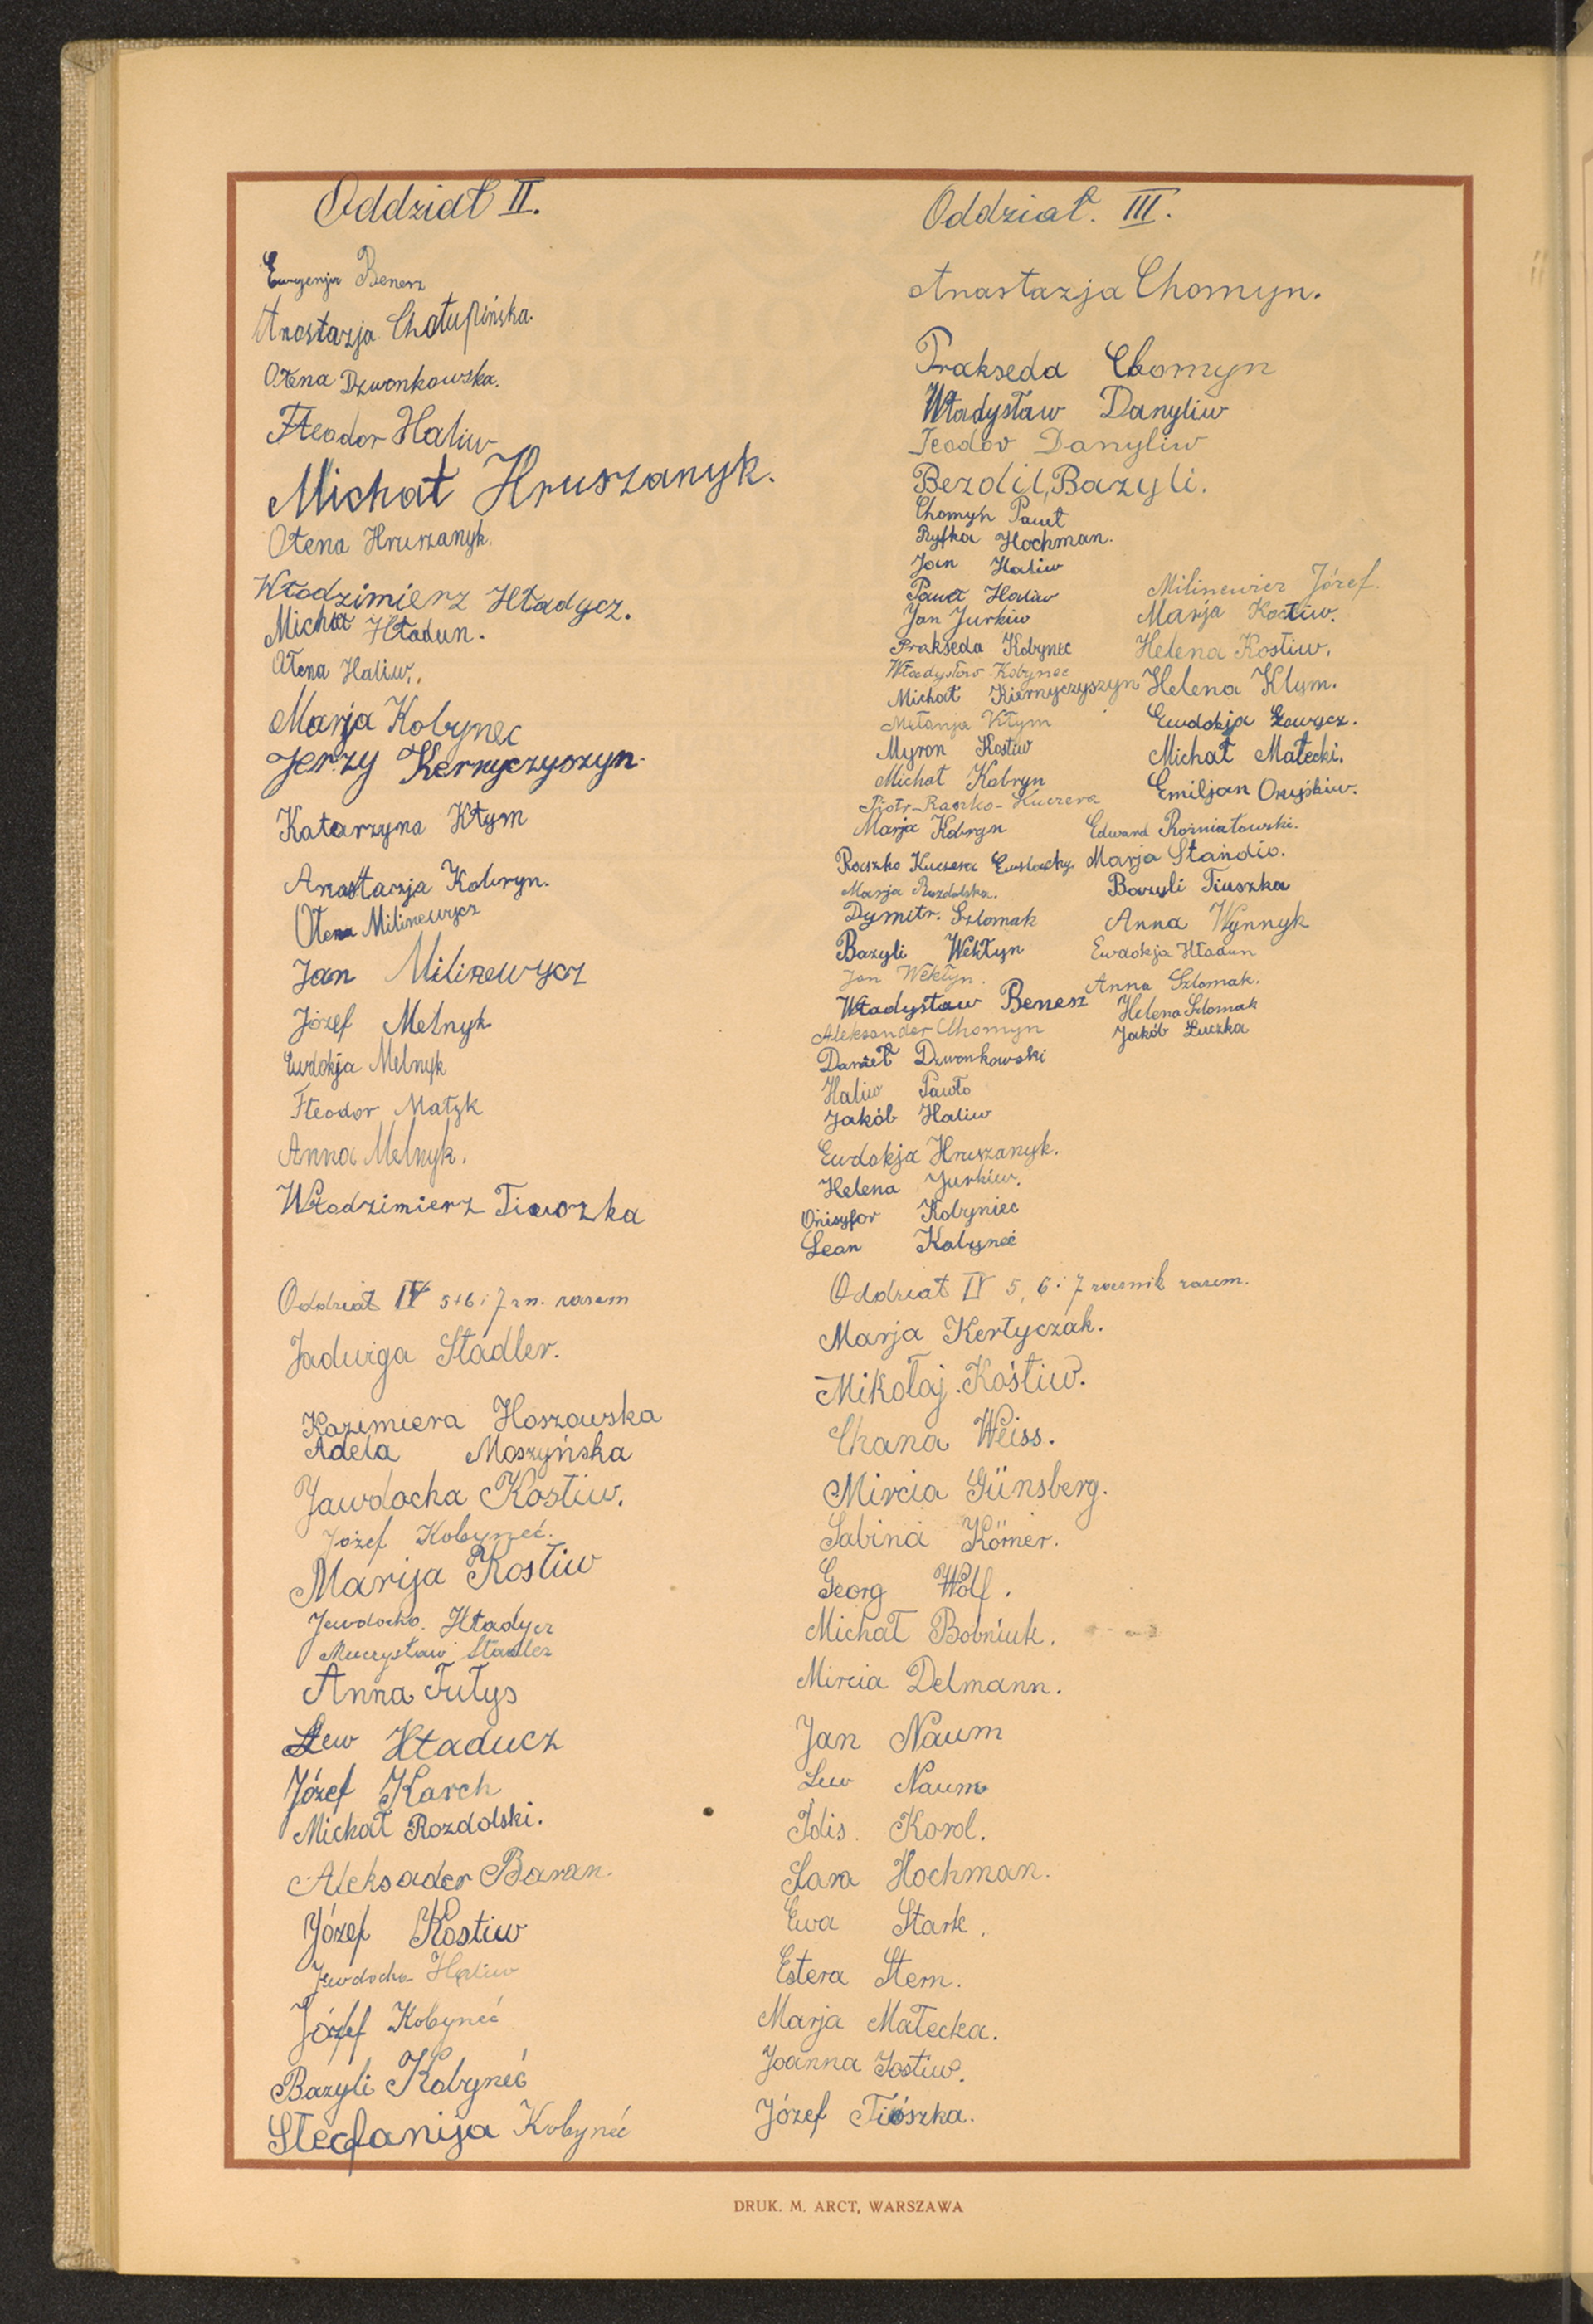 Oddział II.
Eugenja Benesz
Anastazja Chałupińska.
Ołena Dzwonkowska.
Fteodor Haliw
Michał Hruszanyk.
Ołena Hruszanyk.
Włodzimierz Hładycz.
Michał Hładun.
Ołena Haliw.
Marja Kobynec
Jerzy Kernyczyszyn.
Katarzyna Kłym
Anastazja Kobryn.
Ołena Milinewycz
Jan Milinewycz
Józef Melnyk
Eudokja Melnyk
Fteodor Małyk
Anna Melnyk.
Włodzimierz Tiuszka
Oddział III.
Anastazja Chomyn.
Prakseda Chomyn
Władysław Danyliw
Teodor Danyliw
Bezdil, Bazyli.
Chomyn Paweł
Ryfka Hochman.
Jan Haliw
Paweł Haliw
Jan Jurkiw
Prakseda Kobynec
Władysław Kobynec
Michał Kiernyczyszyn
Mełanja Kłym
Myron Kostiw
Michał Kobryn
Piotr-Raszko-Kuczera
Marja Kobryn
Raszko Kuczera Eustachy
Marja Rozdolska.
Dymitr. Szlomak
Bazyli Wekłyn
Jan Wekłyn.
Władysław Benesz
Aleksander Chomyn
Daniel Dzwonkowski
Haliw Pawło
Jakób Haliw
Eudokja Hruszanyk.
Helena Jurkiw.
Onisyfor Kobyniec
Lean Kobyneć
Milinewicz Józef.
Marja Kostiw.
Helena Kostiw.
Helena Klym.
Eudokja Ławycz.
Michał Małecki.
Emiljan Onyśkiw.
Edward Rożniatowski.
Marja Standio.
Bazyli Tiuszka
Anna Wynnyk
Ewdokja Hładun
Anna Szlomak.
Helena Szlomak
Jakób Łuczka
Oddział IV 5+6 i 7 rn. razem
Jadwiga Stadler.
Kazimiera Hoszowska
Adela Moszyńska
Jawdocha Kostiw.
Józef Kobyneć.
Marija Kostiw
Jewdocha Hładycz
Mieczysław Stadler
Anna Tutys
Lew Hładucz
Józef Karch
Michał Rozdolski.
Aleksader Baran.
Józef Kostiw
Jewdocha Haliw
Józef Kobyneć
Bazyli Kobyneć
Stecfanija Kobyneć
Oddział IV 5, 6 i 7 rocznik razem.
Marja Kertyczak.
Mikołaj Kostiw.
Chana Weiss.
Mircia Günsberg.
Sabina Körner.
Georg Wolf.
Michał Bobniuk.
Mircia Delmann.
Jan Naum
Lew Naum
Idis. Korol.
Sara Hochman.
Ewa Stark.
Estera Stern.
Marja Małecka.
Joanna Kostiw.
Józef Tiószka.
DRUK. M. ARCT, WARSZAWA